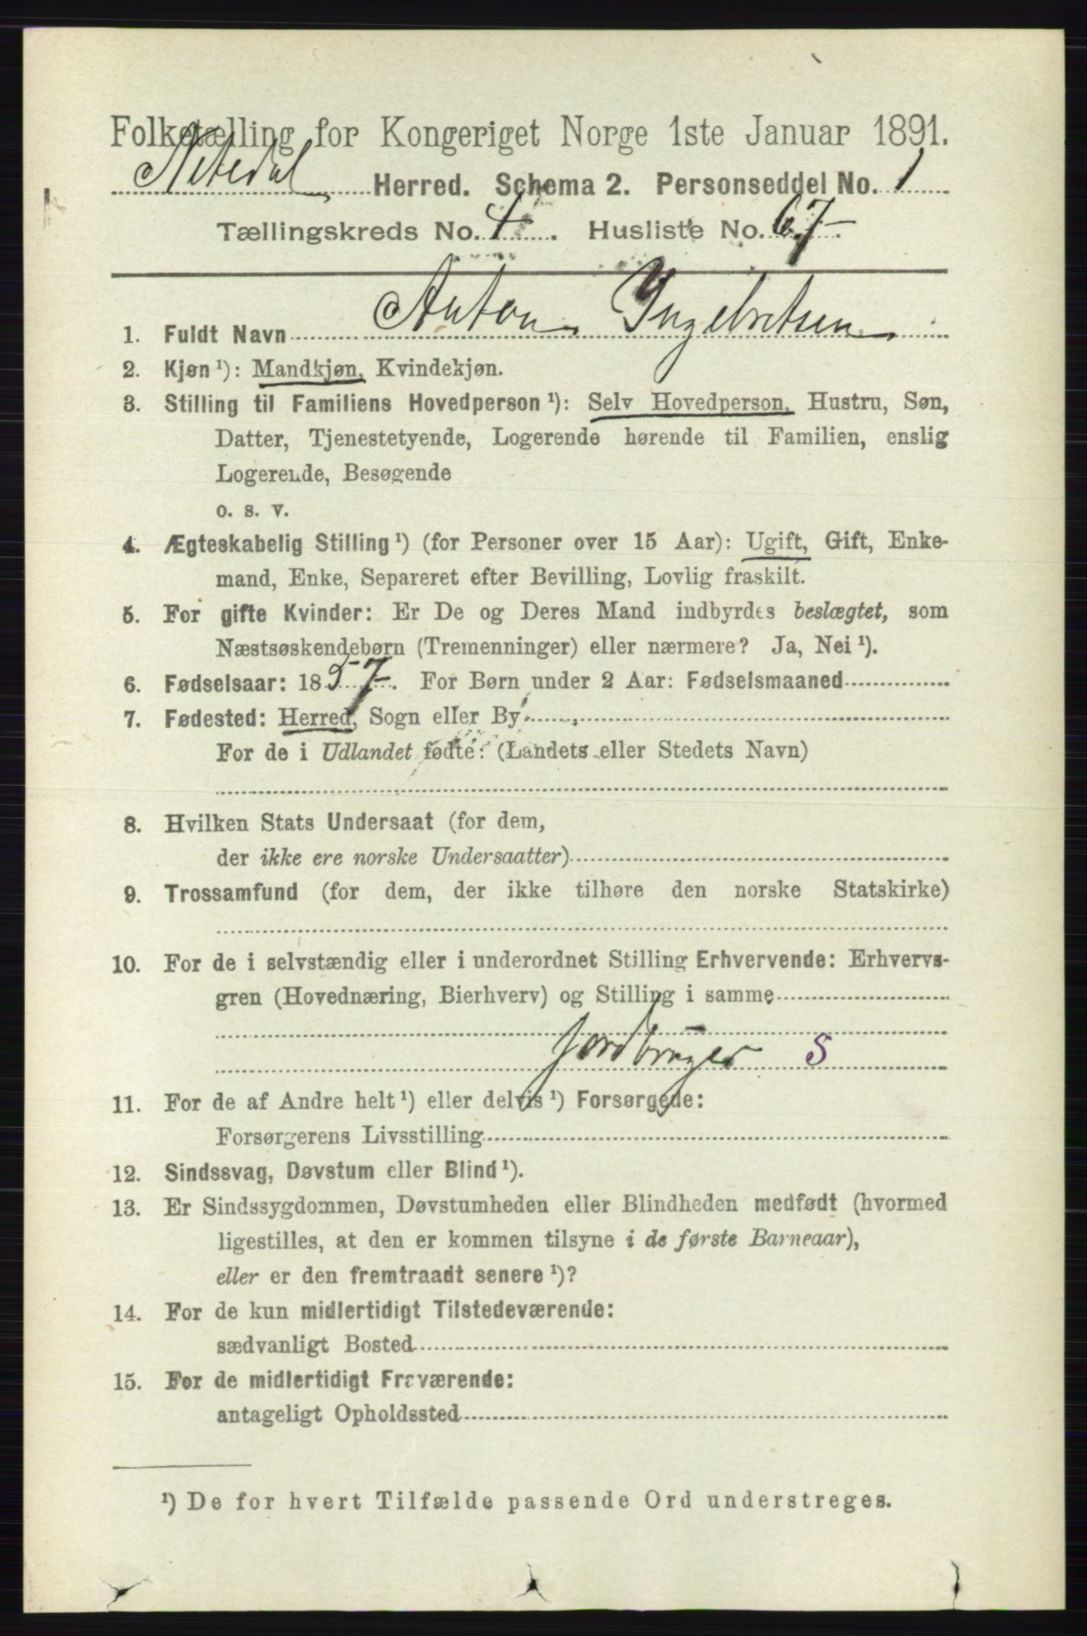 Folketælling for Kongeriget Norge 1ste Januar 1891.
Nitedal Herred. Schema 2. Personseddel No. 1
Tællingskreds No. 4. Husliste No. 67.
1. Fuldt Navn Anton Ingebretsen
2. Kjøn ¹): Mandkjøn, Kvindekjøn.
3. Stilling til Familiens Hovedperson ¹): Selv Hovedperson, Hustru, Søn,
Datter, Tjenestetyende, Logerende hørende til Familien, enslig
Logerende, Besøgende
o. s. v.
4. Ægteskabelig Stilling ¹) (for Personer over 15 Aar): Ugift, Gift, Enke-
mand, Enke, Separeret efter Bevilling, Lovlig fraskilt.
5. For gifte Kvinder: Er De og Deres Mand indbyrdes beslægtet, som
Næstsøskendebørn (Tremenninger) eller nærmere? Ja, Nei ¹).
6. Fødselsaar: 1857. For Børn under 2 Aar: Fødselsmaaned
7. Fødested: Herred, Sogn eller By
For de i Udlandet fødte: (Landets eller Stedets Navn)
8. Hvilken Stats Undersaat (for dem,
der ikke ere norske Undersaatter)
9. Trossamfund (for dem, der ikke tilhøre den norske Statskirke)
10. For de i selvstændig eller i underordnet Stilling Erhvervende: Erhvervs-
gren (Hovednæring, Bierhverv) og Stilling i samme
Jordbruger S
11. For de af Andre helt ¹) eller delvis ¹) Forsørgede:
Forsørgerens Livsstilling
12. Sindssvag, Døvstum eller Blind ¹).
13. Er Sindssygdommen, Døvstumheden eller Blindheden medfødt (hvormed
ligestilles, at den er kommen tilsyne i de første Barneaar),
eller er den fremtraadt senere ¹)?
14. For de kun midlertidigt Tilstedeværende:
sædvanligt Bosted
15. For de midlertidigt Fraværende:
antageligt Opholdssted
¹) De for hvert Tilfælde passende Ord understreges.